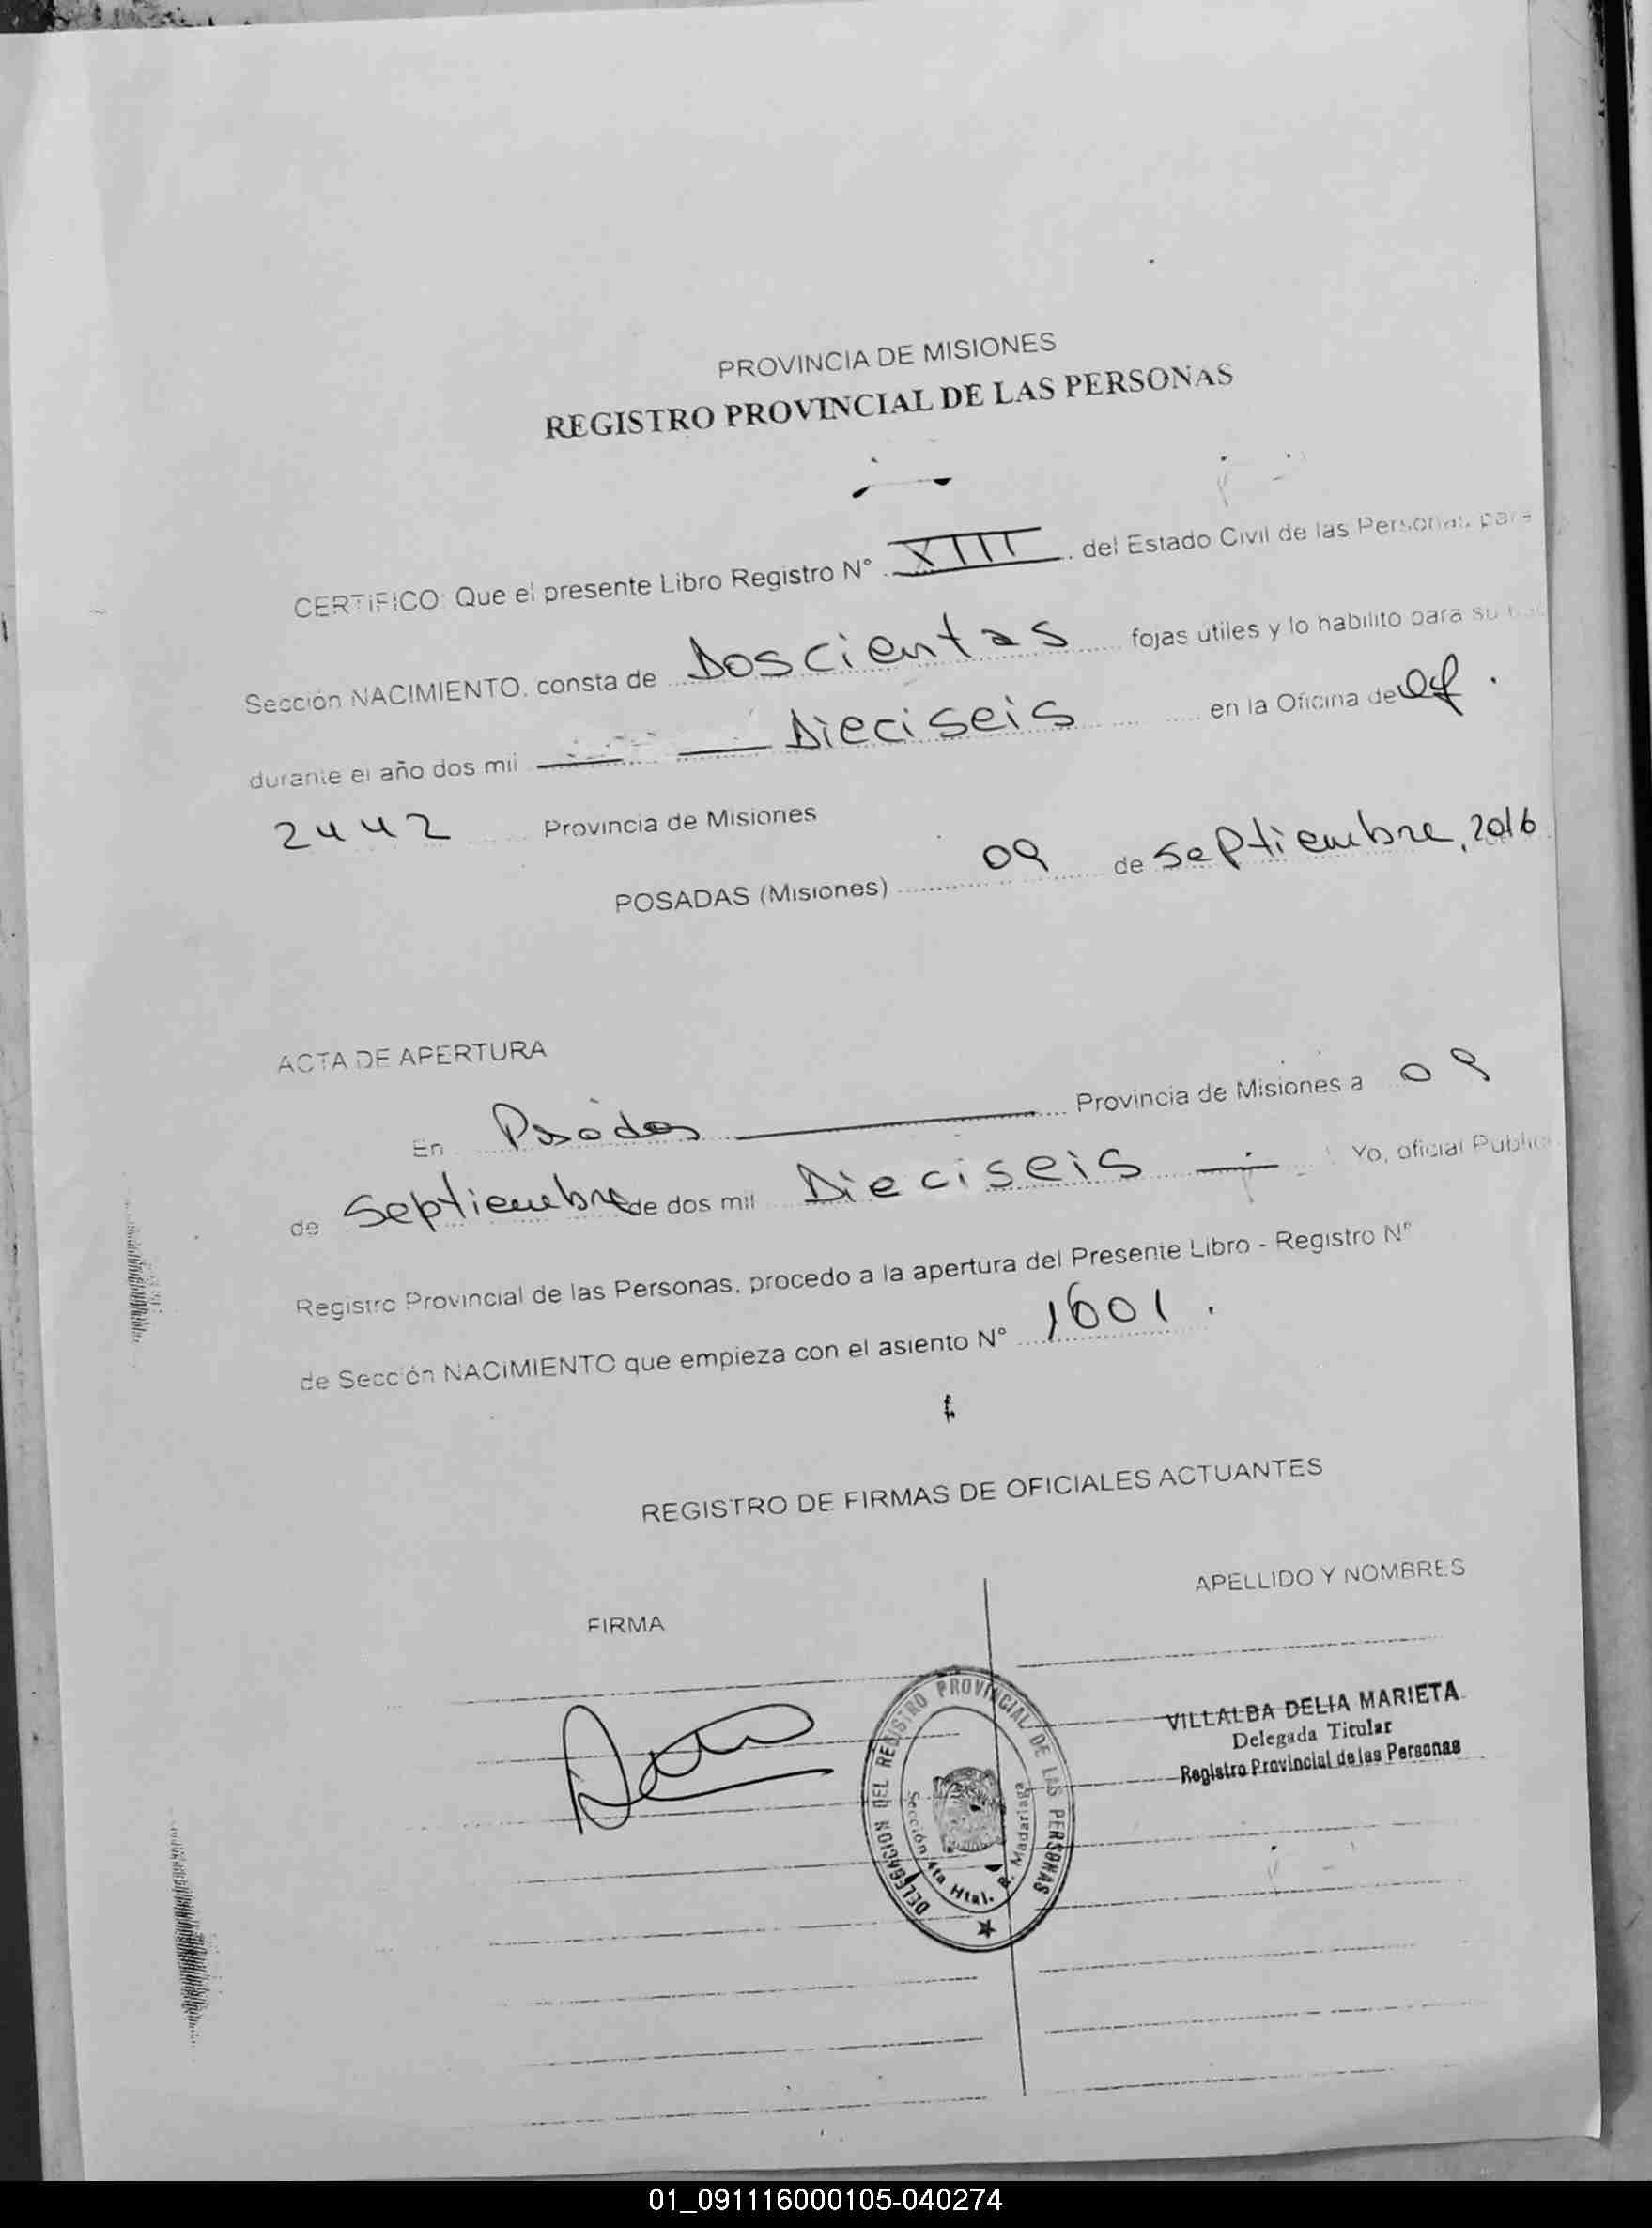 PROVINCIA DE MISIONES
REGISTRO PROVINCIAL DE LAS PERSONAS
CERTIFICO: Que el presente Libro Registro N° XIII del Estado Civil de las Personas, para
Sección NACIMIENTO, consta de Doscientas fojas útiles y lo habilito para su
durante el año dos mil Dieciseis en la Oficina de
2442 Provincia de Misiones
POSADAS (Misiones) 09 de Septiembre, 2016
ACTA DE APERTURA
En Posadas Provincia de Misiones a 09
de Septiembre de dos mil Dieciseis Yo, oficial Publico
Registro Provincial de las Personas, procedo a la apertura del Presente Libro - Registro N°
de Sección NACIMIENTO que empieza con el asiento N° 1601.
REGISTRO DE FIRMAS DE OFICIALES ACTUANTES
FIRMA
APELLIDO Y NOMBRES
DELEGACION DEL REGISTRO PROVINCIAL DE LAS PERSONAS
Sección 4ta Htal. R. Madariaga
VILLALBA DELIA MARIETA
Delegada Titular
Registro Provincial de las Personas
01_091116000105-040274